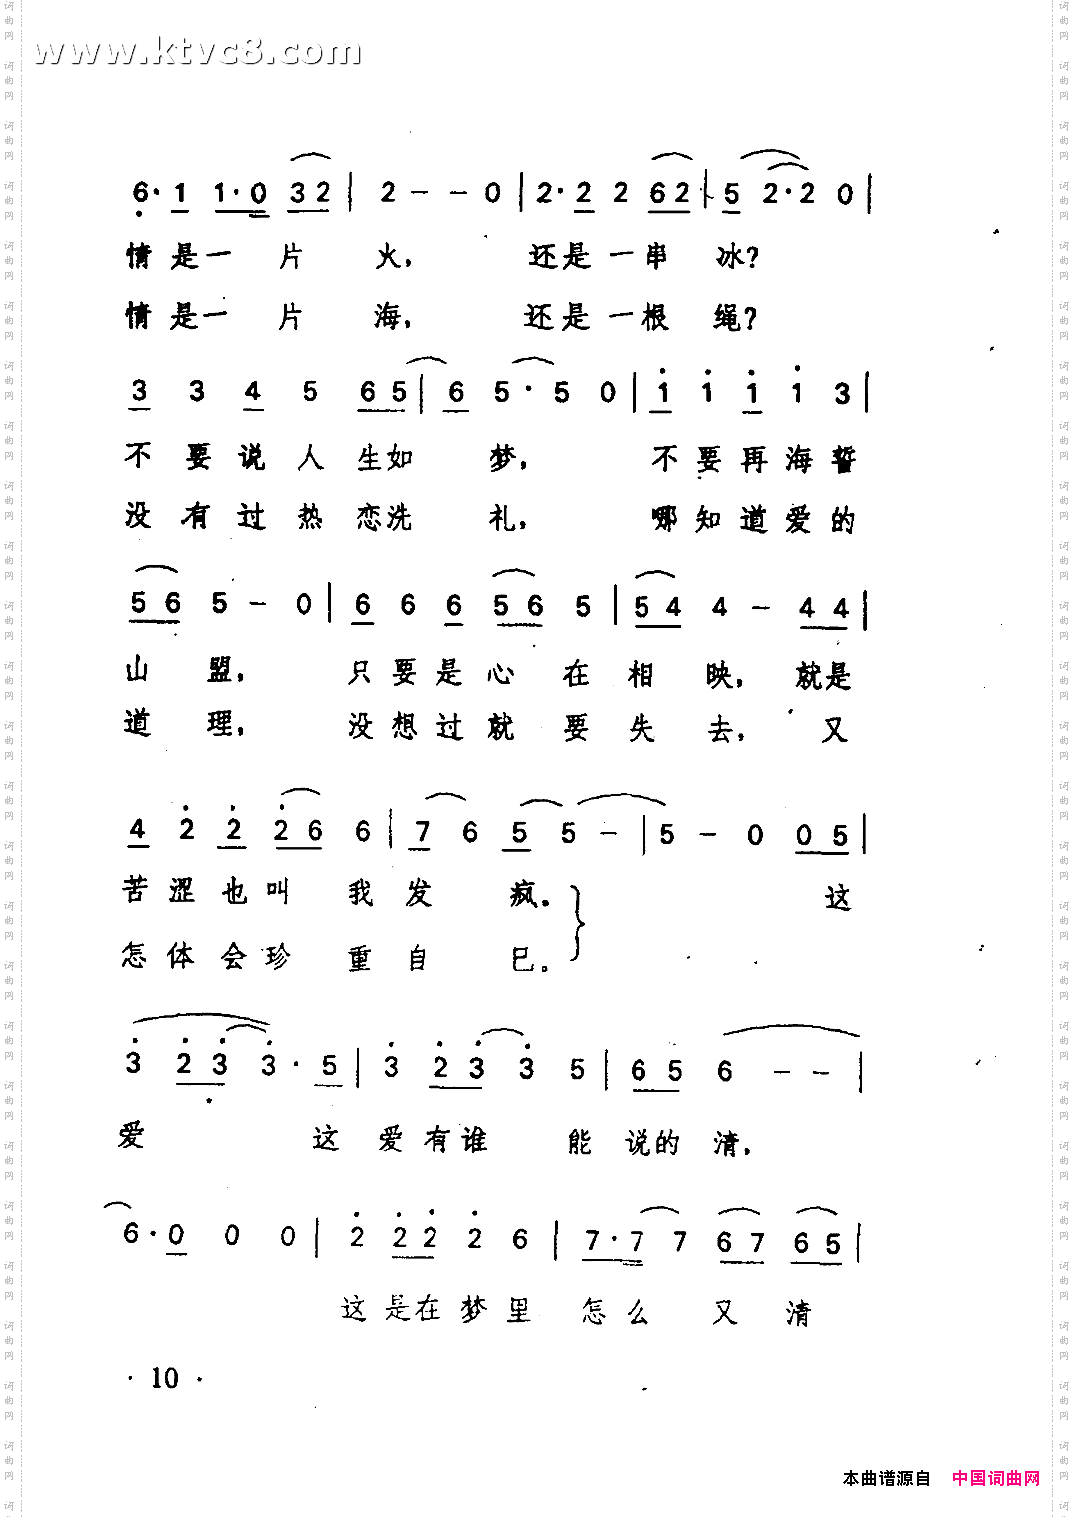 www.ktvc8.com
6·1 1·0 32 | 2 - - 0 | 2·2 2 62 | 5 2·2 0 |
情是一片火， 还是一串冰？
情是一片海， 还是一根绳？
3 3 4 5 65 | 6 5·5 0 | 1 1 1 1 3 |
不要说人生如梦， 不要再海誓
没有过热恋洗礼， 哪知道爱的
56 5 - 0 | 6 6 6 56 5 | 54 4 - 44 |
山盟， 只要是心在相映， 就是
道理， 没想过就要失去， 又
4 2 2 26 6 | 7 6 5 5 - | 5 - 0 05 |
苦涩也叫我发疯． 这
怎体会珍重自己。
3 23 3·5 | 3 23 3 5 | 65 6 - - |
爱 这爱有谁能说的清，
6·0 0 0 | 2 22 2 6 | 7·7 7 67 65 |
这是在梦里怎么又清
· 10 ·
本曲谱源自 中国词曲网